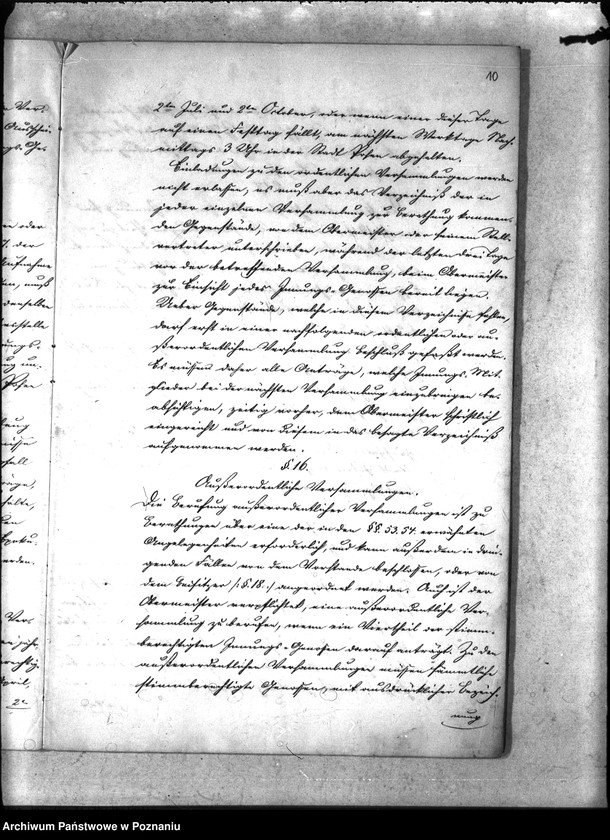 10
2ten Juli und 2ten October, oder wenn einer dieser Tage
auf einen Festtag fällt, am nächsten Werktage Nach-
mittags 3 Uhr in der Stadt Posen abgehalten.
Einladungen zu den ordentlichen Versammlungen werden
nicht erlassen, es muß aber das Verzeichniß der in
jeder einzelnen Versammlung zur Berathung kommen-
den Gegenstände, von dem Obermeister oder seinem Stell-
vertreter unterschrieben, während der letzten drei Tage
vor der betreffenden Versammlung, beim Obermeister
zur Einsicht jedes Innungs-Genossen bereit liegen.
Ueber Gegenstände, welche in diesem Verzeichnisse fehlen,
darf erst in einer nachfolgenden ordentlichen oder au-
ßerordentlichen Versammlung Beschluß gefaßt werden.
Es müssen daher alle Anträge, welche Innungs-Mit-
glieder bei der nächsten Versammlung einzubringen be-
absichtigen, zeitig vorher, dem Obermeister schriftlich
eingereicht und von diesem in das besagte Verzeichniß
aufgenommen werden.
§ 16.
Außerordentliche Versammlungen.
Die Berufung außerordentlicher Versammlungen ist zu
Berathungen über eine der in den §§ 53. 54. erwähnten
Angelegenheiten erforderlich, und kann außerdem in drin-
genden Fällen von dem Vorstande beschlossen, oder von
dem Beisitzer /: § 18. :/ angeordnet werden. Auch ist der
Obermeister verpflichtet, eine außerordentliche Ver-
sammlung zu berufen, wenn ein Viertheil der stimm-
berechtigten Innungs-Genossen darauf anträgt. Zu den
außerordentlichen Versammlungen müssen sämmtliche
stimmberechtigte Genossen, mit ausdrücklicher Bezeich-
nung
Archiwum Państwowe w Poznaniu